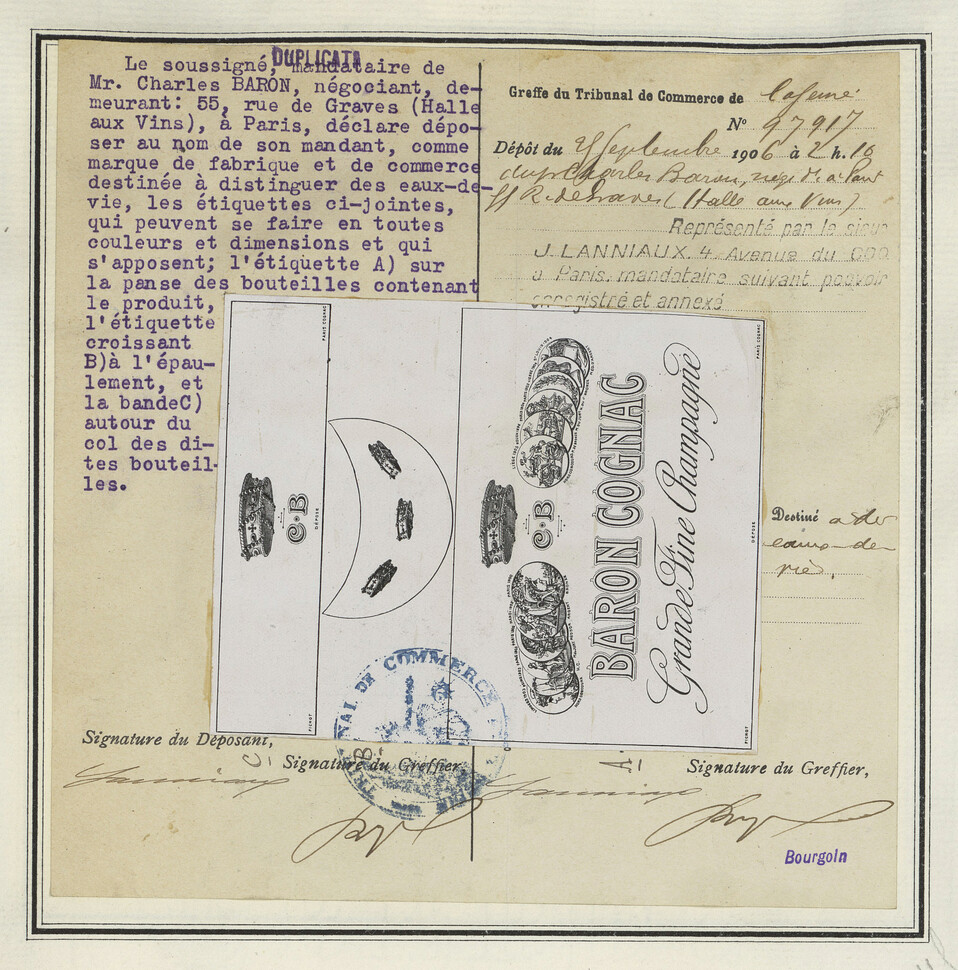 DUPLICATA
Le soussigné, mandataire de
Mr. Charles BARON, négociant, de-
meurant: 55, rue de Graves (Halle
aux Vins), à Paris, déclare dépo-
ser au nom de son mandant, comme
marque de fabrique et de commerce
destinée à distinguer des eaux-de-
vie, les étiquettes ci-jointes,
qui peuvent se faire en toutes
couleurs et dimensions et qui
s'apposent; l'étiquette A) sur
la panse des bouteilles contenant
le produit,
l'étiquette
croissant
B)à l'épau-
lement, et
la bandeC)
autour du
col des di-
tes bouteil-
les.
Greffe du Tribunal de Commerce de la Seine
No 97917
Dépôt du Septembre 1906 à 2 h. 10
Charles Baron, négt. à
R. de Graves (Halle aux Vins)
Représenté par le sieur
J. LANNIAUX, 4, Avenue du COQ
à Paris, mandataire suivant pouvoir
enregistré et annexé
Destiné à des
eaux-de-
vie.
PARIS COGNAC
C·B
DÉPOSÉ
PICHOT
PARIS COGNAC
C·B
BARON COGNAC
Grande Fine Champagne
DÉPOSÉ
PICHOT
TRIBUNAL DE COMMERCE
Signature du Déposant,
C
B
A
Signature du Greffier,
Signature du Greffier,
Lanniaux
Lanniaux
Bourgoin